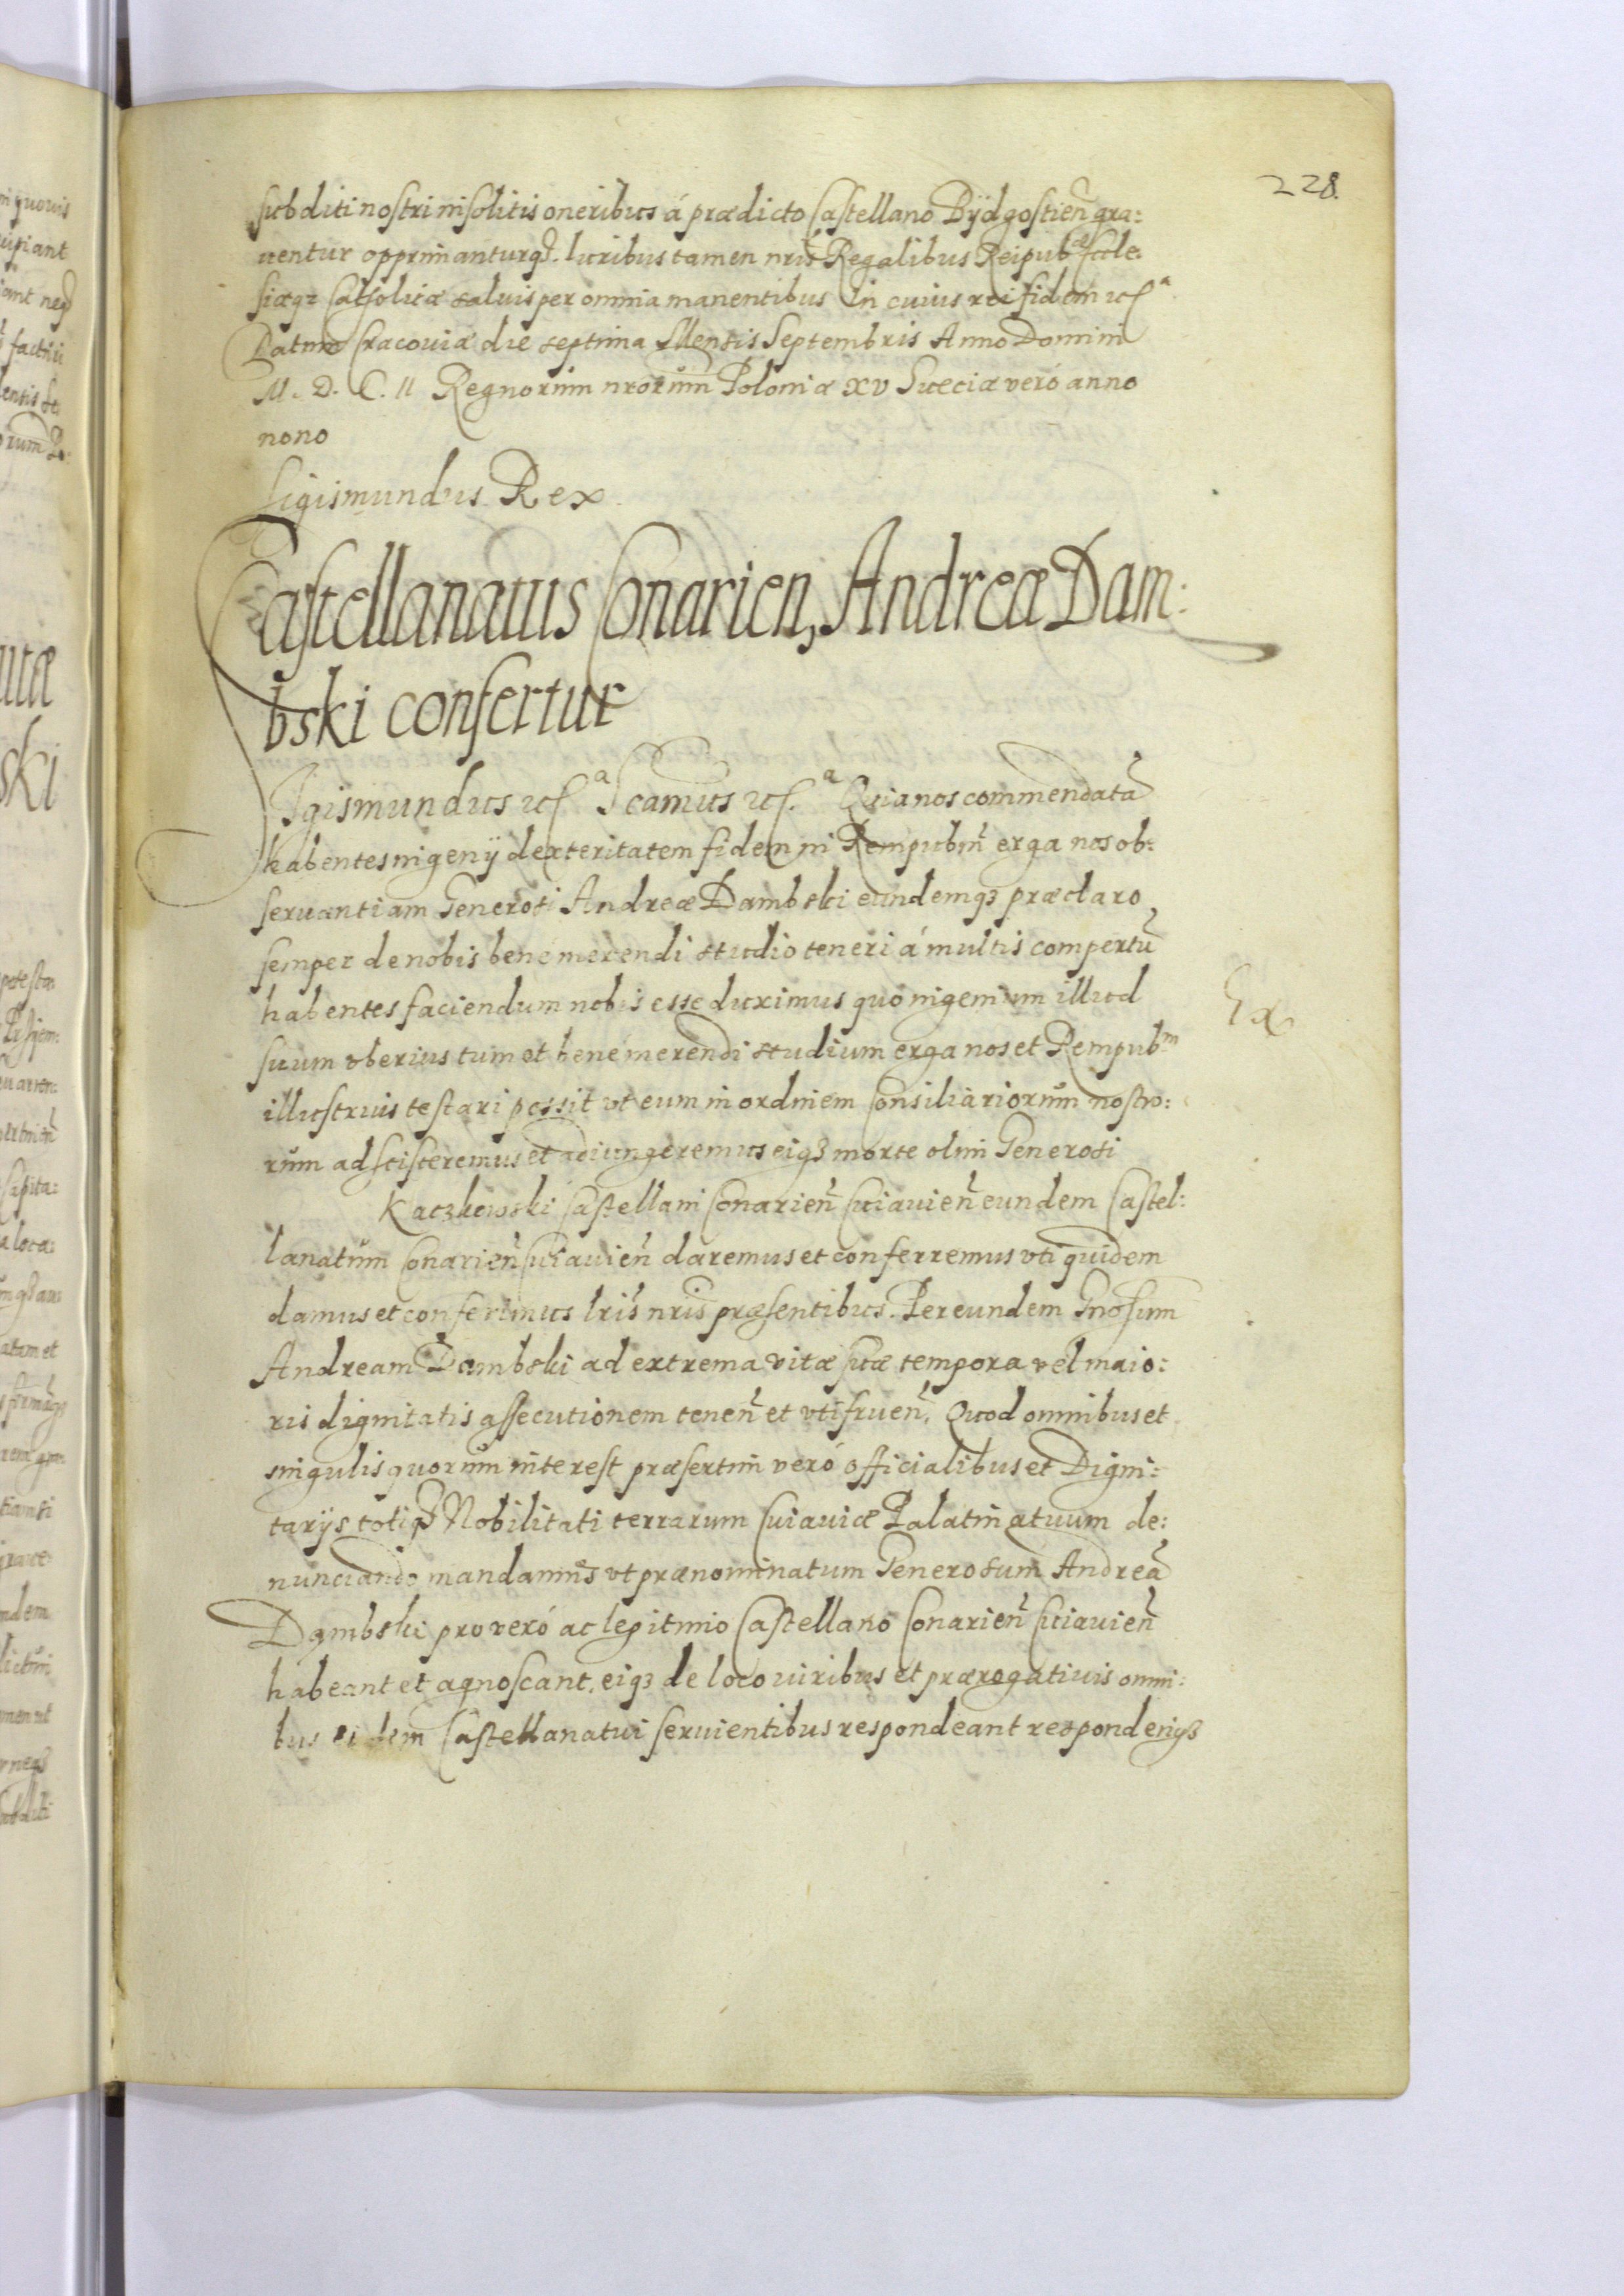 228.
subditi nostri insolitis oneribus á prædicto Castellano Bÿdgostien̄ gra:
uentur opprimanturq3. Iuribus tamen nris̄ Regalibus Reipub^æ Eccle:
siæq3 Catolicæ saluis per omnia manentibus In cuius rei fidem etc^a
Datum Cracouiæ die septima Mensis Septembris Anno Domini
M. D. C. II Regnorum nrorum Poloniæ XV Sueciæ veró anno
nono
Sigismundus Rex
Castellanatus Conarien, Andreæ Dam:
bski confertur
Sigismundus etc^a Scamus etc.^a Quia nos commendatā
habentes ingenij dexteritatem fidem in Rempubm̄ erga nos ob:
seruantiam Generosi Andreæ Dambski eundemq3 præclaro
semper de nobis bene merendi studio teneri á multis compertū
habentes faciendum nobis esse duximus quo ingenium illud
suum vberius tum et bene merendi studium erga nos et Rempub^m
illustrius testari possit vt eum in ordinem Consiliariorum nostro:
rum adscisceremus et adiungeremus eiq3 morte olim Generosi
Kaczkowski Castellani Conarien̄ Cuiauien̄ eundem Castel:
lanatum Conarien̄ Cuiauien̄ daremus et conferremus vti quidem
damus et conferimus lris̄ nris̄ præsentibus. Per eundem Gnosum
Andream Dambski ad extrema vitæ suæ tempora vel maio:
ris dignitatis assecutionem tenen̄ et vtifruen̄. Quod omnibus et
singulis quorum interest præsertim veró officialibus et Digni:
tarijs totiq3 Nobilitati terrarum Cuiauiæ Palatinatuum de:
nunciando mandamus vt prænominatum Generosum Andreā
Dambski pro veró ac legitimo Castellano Conarien̄ Cuiauien̄
habeant et agnoscant, eiq3 de loco iuribus et prærogatiuis omni:
bus eidem Castellanatui seruientibus respondeant responderiq3
Ex